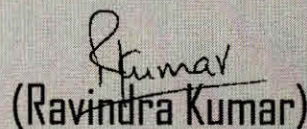 RKumar
(Ravindra Kumar)